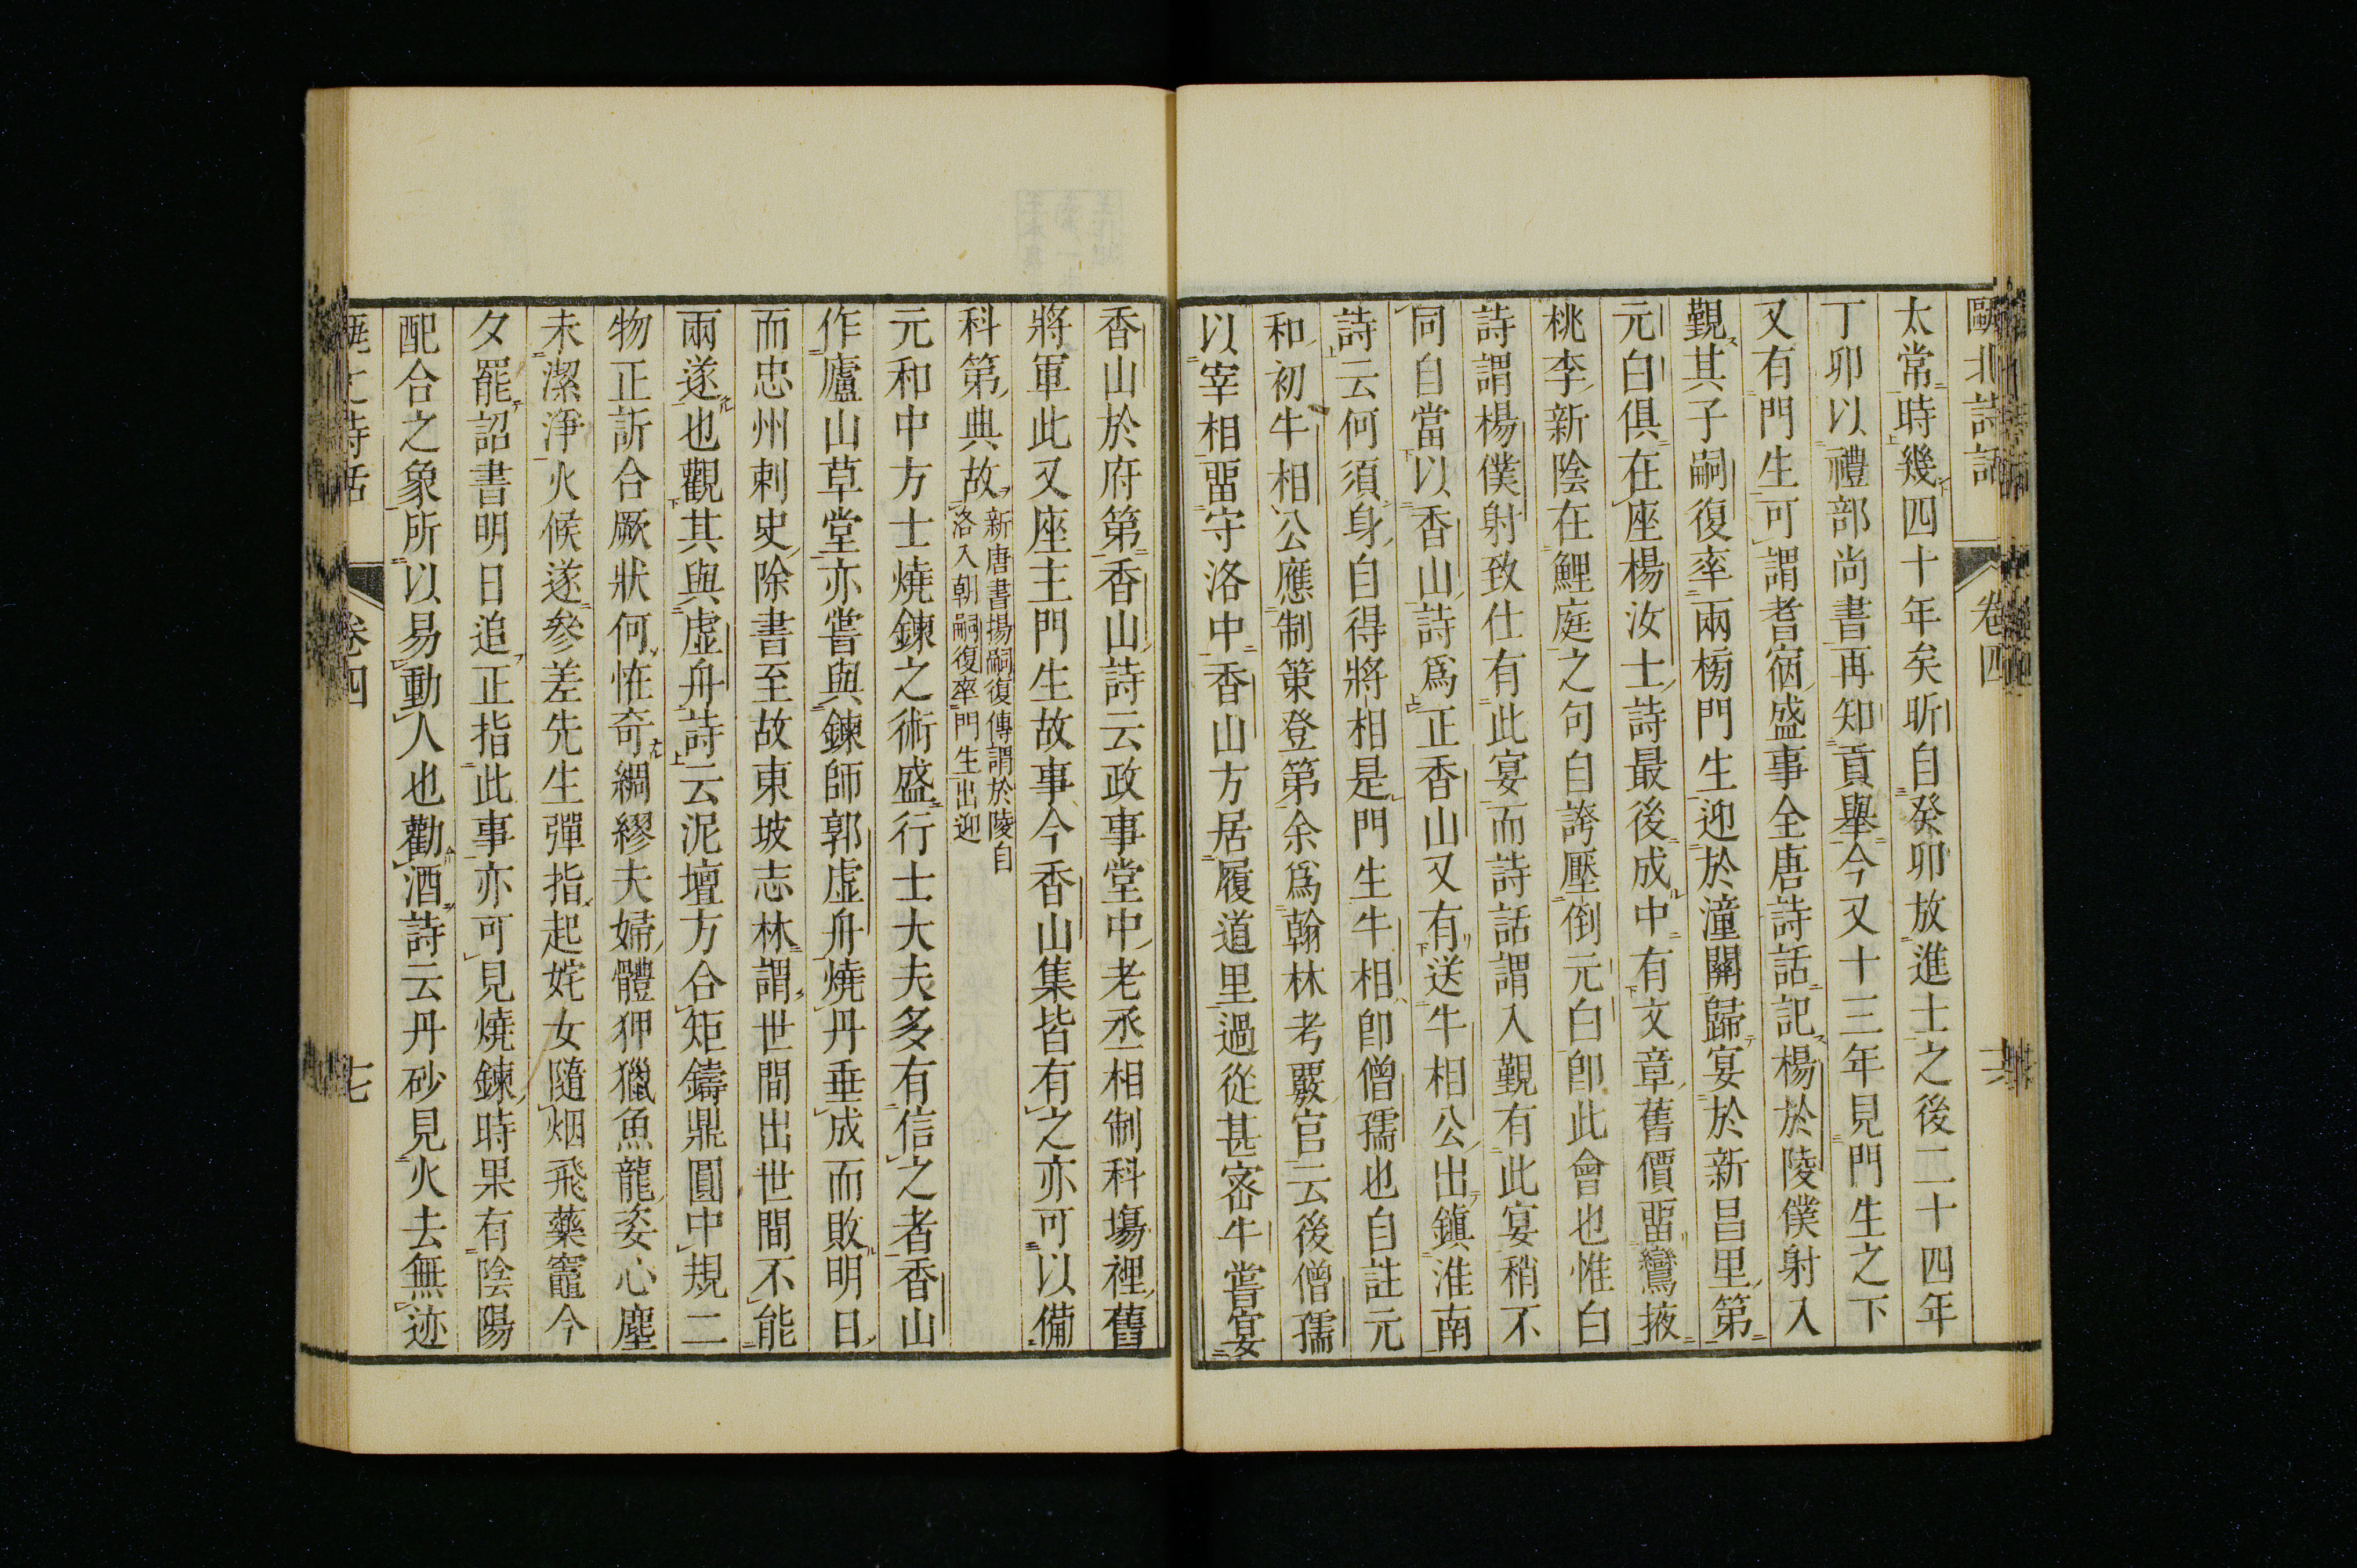 甌北詩話 卷四
太常時幾四十年矣昕自癸卯放進士之後二十四年
丁卯以禮部尚書再知貢舉今又十三年見門生之下
又有門生可謂耆宿盛事全唐詩話記楊於陵僕射入
覲其子嗣復率兩榜門生迎於潼關歸宴於新昌里第
元白俱在座楊汝士詩最後成中有文章舊價畱鸞掖
桃李新陰在鯉庭之句自誇壓倒元白卽此會也惟白
詩謂楊僕射致仕有此宴而詩話謂入覲有此宴稍不
同自當以香山詩爲正香山又有送牛相公出鎭淮南
詩云何須身自得將相是門生牛相卽僧孺也自註元
和初牛相公應制策登第余爲翰林考覈官云後僧孺
以宰相畱守洛中香山方居履道里過從甚密牛嘗宴
香山於府第香山詩云政事堂中老丞相制科塲裡舊
將軍此又座主門生故事今香山集皆有之亦可以備
科第典故新唐書揚嗣復傳謂於陵自
洛入朝嗣復率門生出迎
元和中方士燒鍊之術盛行士大夫多有信之者香山
作廬山草堂亦嘗與鍊師郭虛舟燒丹垂成而敗明日
而忠州刺史除書至故東坡志林謂世間出世間不能
兩遂也觀其與虛舟詩云泥壇方合矩鑄鼎圓中規二
物正訢合厥狀何恠奇綢繆夫婦體狎獵魚龍姿心塵
未潔淨火候遂參差先生彈指起姹女隨烟飛藥竈今
夕罷詔書明日追正指此事亦可見燒鍊時果有陰陽
配合之象所以易動人也勸酒詩云丹砂見火去無迹
卷四 七